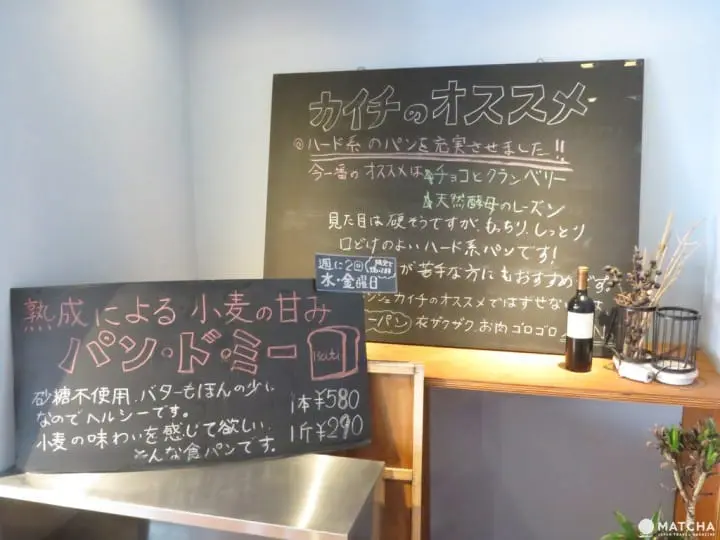 カイチのオススメ
◎ハード系のパンを充実させました!!
今一番のオススメは チョコとクランベリー
天然酵母のレーズン
見た目は硬そうですが、もっちり、しっとり
口どけのよいハード系パンです!
が苦手な方にもおすすめです
カイチのオススメではずせない
ーパン 衣ザクザク、お肉ゴロゴロ
週に2回
水・金曜日
熟成による小麦の甘み
パン・ド・ミー
砂糖不使用、バターもほんの少し
なのでヘルシーです。
小麦の味わいを感じて欲しい、
そんな食パンです。
1本¥580
1斤¥290
MATCHA
JAPAN TRAVEL MAGAZINE